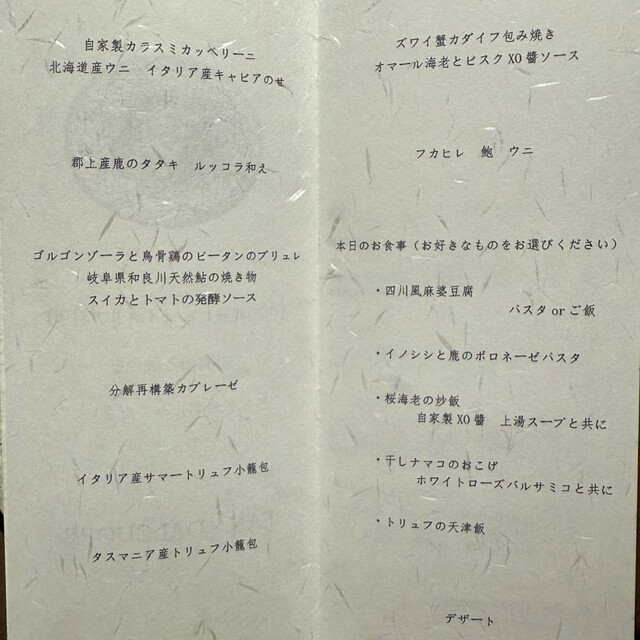 自家製カラスミカッペリーニ
北海道産ウニ　イタリア産キャビアのせ
郡上産鹿のタタキ　ルッコラ和え
ゴルゴンゾーラと烏骨鶏のピータンのブリュレ
岐阜県和良川天然鮎の焼き物
スイカとトマトの発酵ソース
分解再構築カプレーゼ
イタリア産サマートリュフ小籠包
タスマニア産トリュフ小籠包
ズワイ蟹カダイフ包み焼き
オマール海老とビスクXO醬ソース
フカヒレ　鮑　ウニ
本日のお食事（お好きなものをお選びください）
・四川風麻婆豆腐
パスタ or ご飯
・イノシシと鹿のボロネーゼパスタ
・桜海老の炒飯
自家製XO醬　上湯スープと共に
・干しナマコのおこげ
ホワイトローズバルサミコと共に
・トリュフの天津飯
デザート